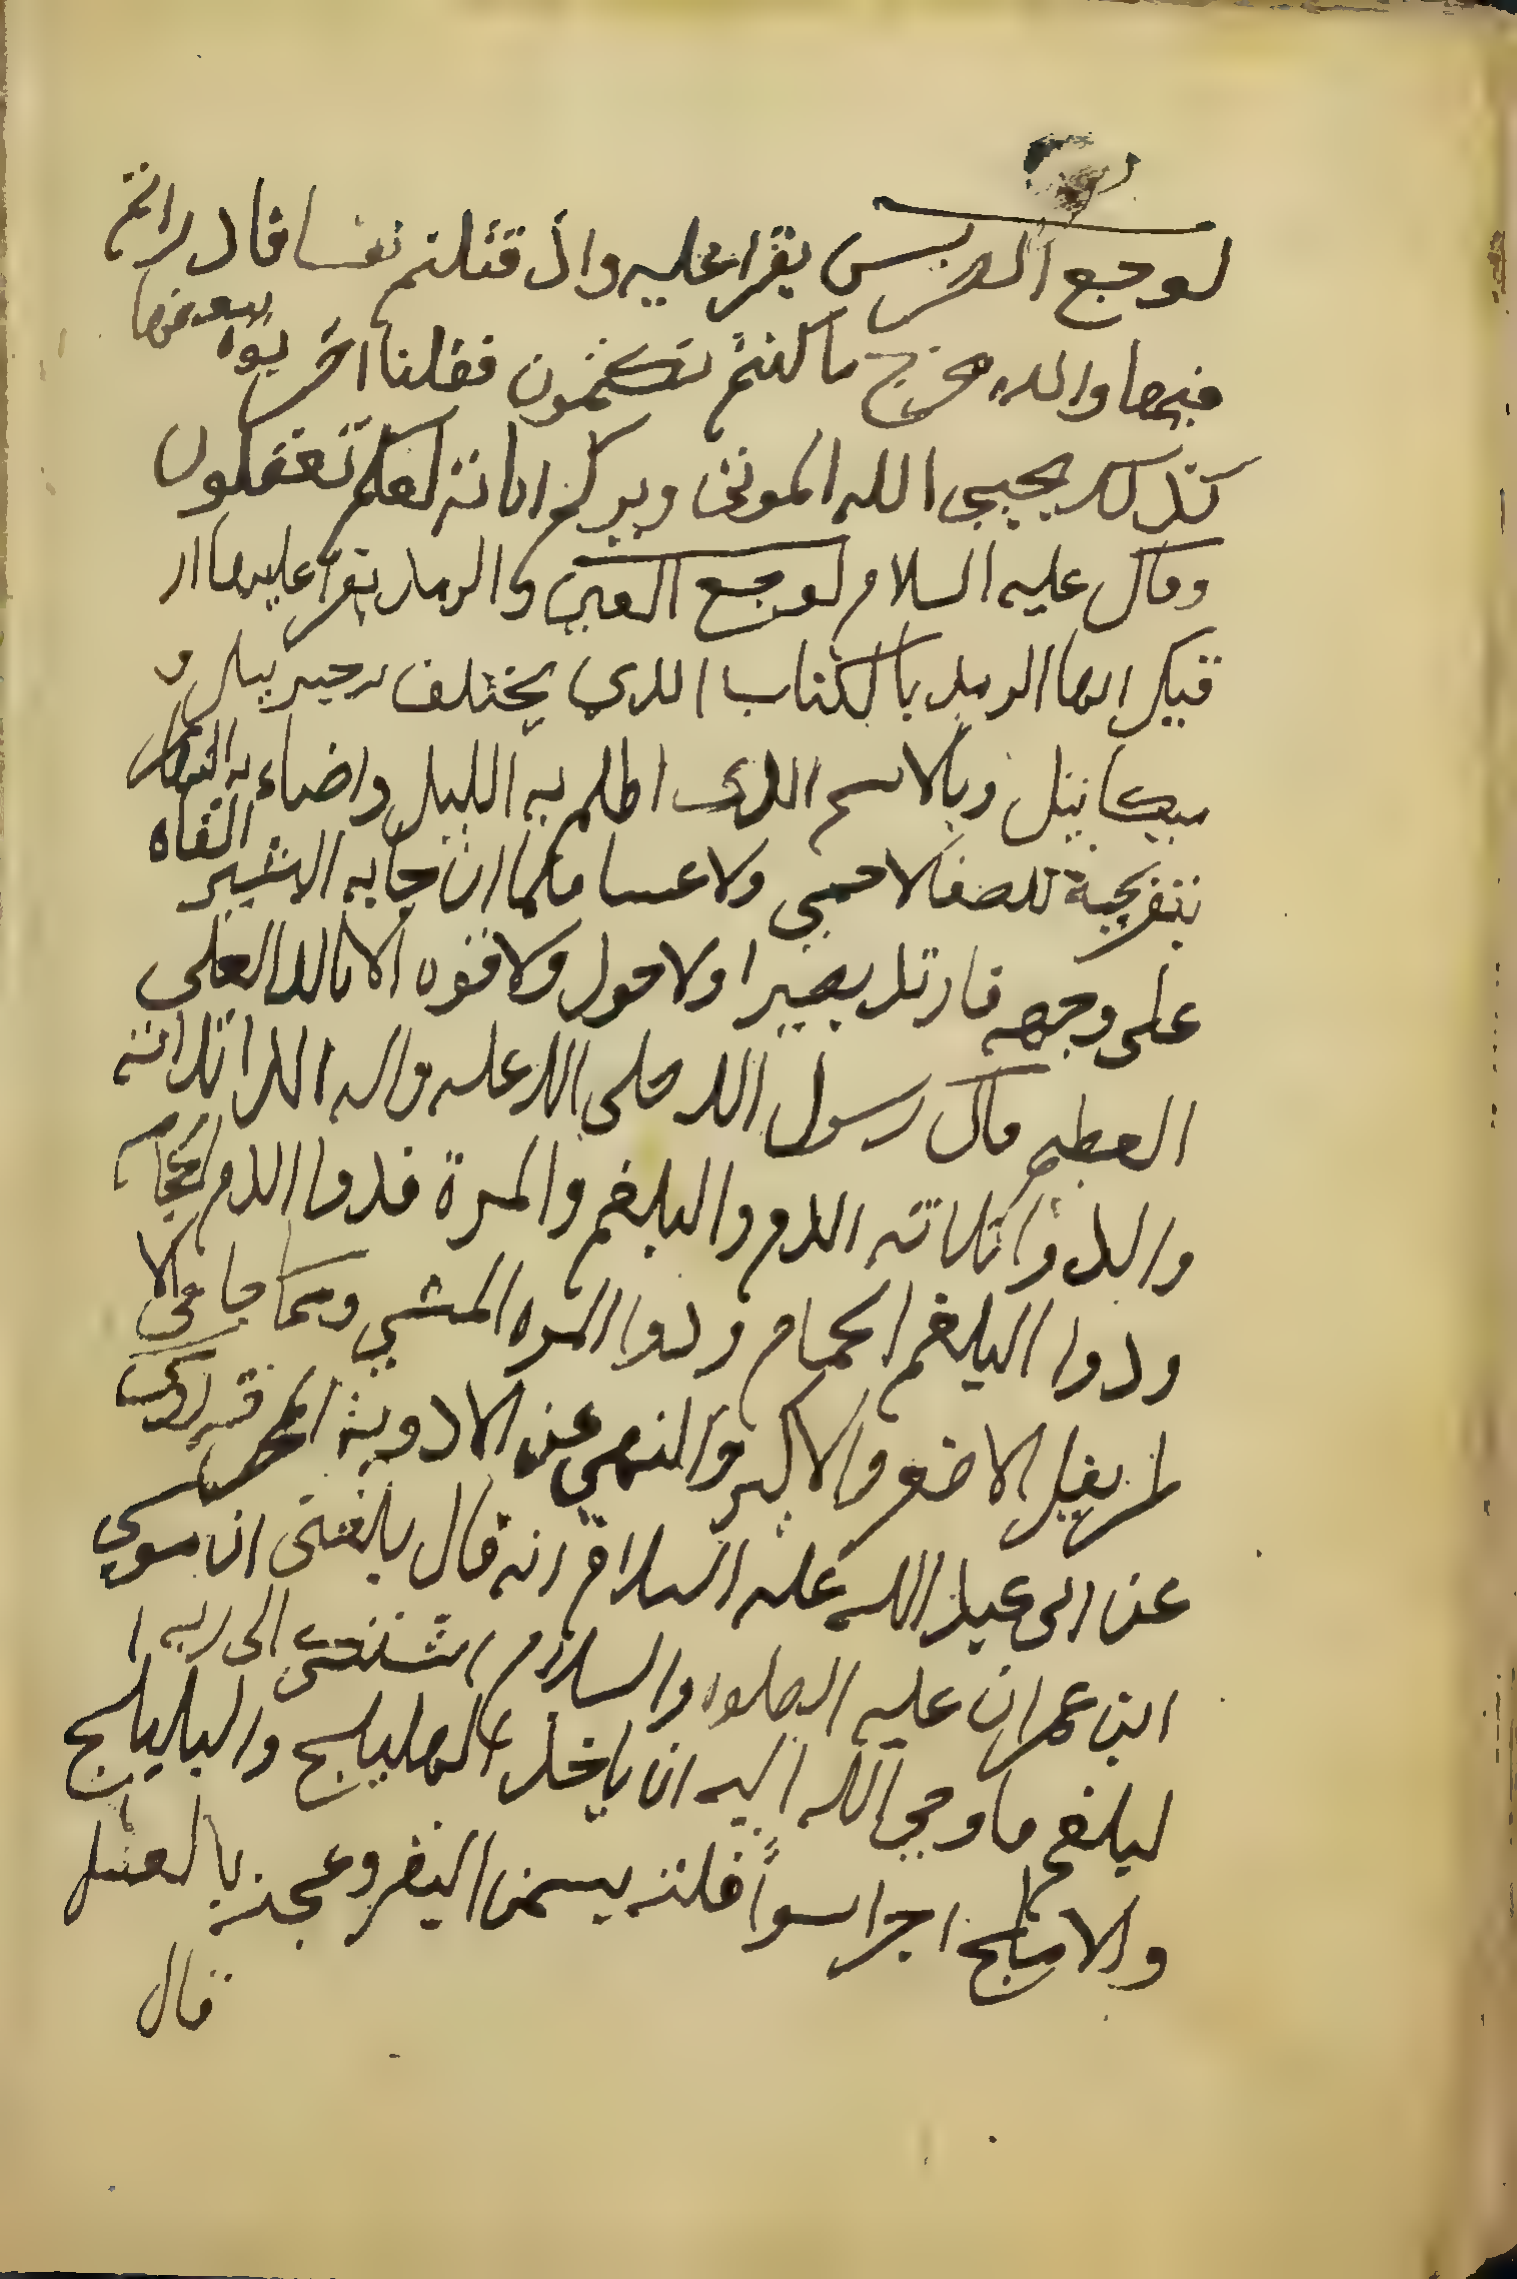 لوجع الضرس يقرا عليه واذ قتلتم نفسا فادراتم
فيها والله مخرج ما كنتم تكتمون فقلنا اضربوه ببعضها
كذلك يحيي الله الموتى ويريكم اياته لعلكم تعقلون
وقال عليه السلام لوجع العين والرمد يقرا عليها ار
قيك ايها الرمد بالكتاب الذي يختلف به جبريل و
ميكائيل وبالاسم الذي اظلم به الليل واضاء به النهار
ولا عسا فلما ان جا به البشير القاه
على وجهه فارتد بصيرا ولا حول ولا قوه الا بالله العلي
العظيم قال رسول الله صلى الله عليه واله الدا ثلاثه
والدوا ثلاثه الدم والبلغم والمرة فدوا الدم الحجامه
ودوا البلغم الحمام ودوا المره المشي ومما جا في الا
طريفل الاصغر والاكبر والنهي عن الادوية روي
عن ابي عبد الله عليه السلام انه قال بلغني ان موسى
ابن عمران عليه الصلوه والسلام اشتكى الى ربه ا
لبلغم فاوحي الله اليه ان ياخذ الهليلج والبليلج
والاملج اجزا سوآ فلته بسمن البقر وعجنه بالعسل
قال